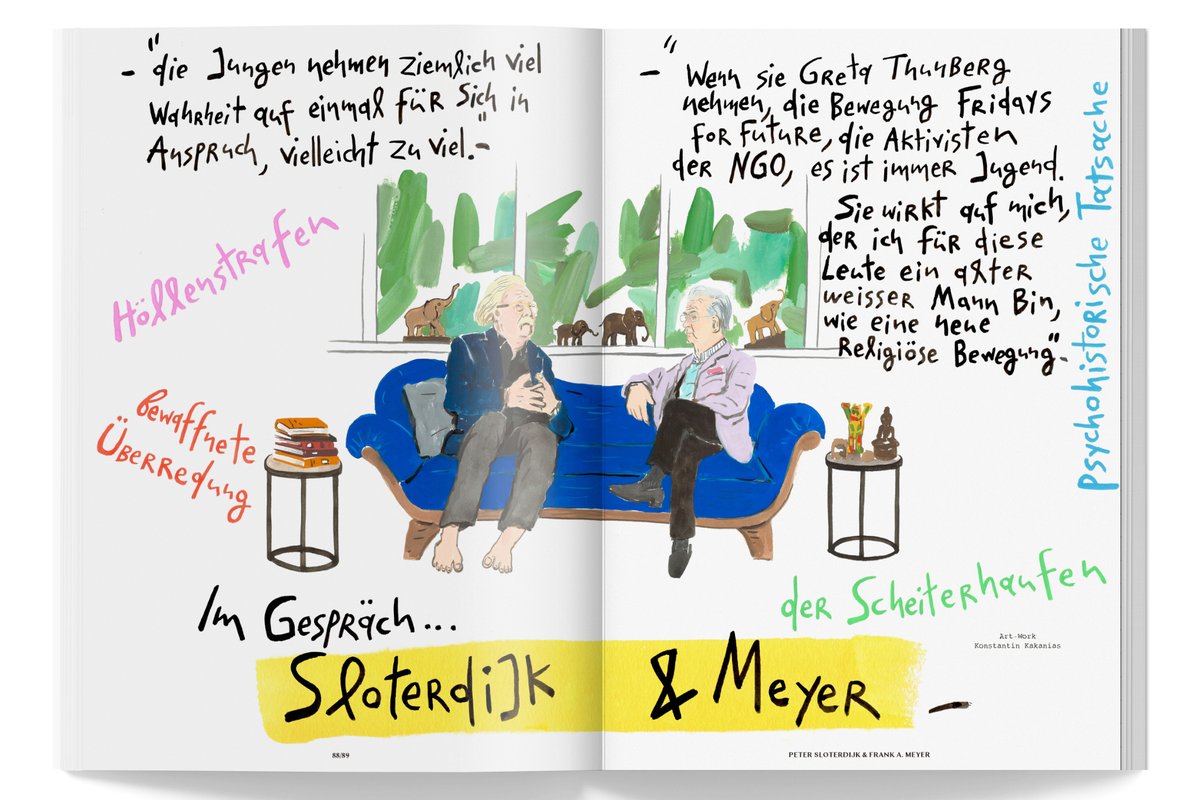 - "die Jungen nehmen ziemlich viel
Wahrheit auf einmal für Sich in
Anspruch, vielleicht zu viel."-
- "Wenn sie Greta Thunberg
nehmen, die Bewegung Fridays
for Future, die Aktivisten
der NGO, es ist immer Jugend.
Sie wirkt auf mich,
der ich für diese
Leute ein alter
weisser Mann Bin,
wie eine neue
Religiöse Bewegung"-
Psychohistorische Tatsache
Höllenstrafen
Bewaffnete
Überredung
der Scheiterhaufen
Im Gespräch...
Sloterdijk & Meyer -
Art-Work
Konstantin Kakanias
88/89
PETER SLOTERDIJK & FRANK A. MEYER